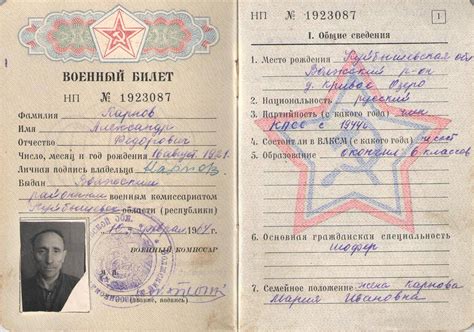 ВОЕННЫЙ БИЛЕТ
НП № 1923087
Фамилия Карпов
Имя Александр
Отчество Федорович
Число, месяц и год рождения 16 августа 1921
Личная подпись владельца
Выдан Волжским
районным военным комиссариатом
Куйбышевской области (республики)
ВОЕННЫЙ КОМИССАР
М. П.
(звание, подпись)
НП № 1923087
1
I. Общие сведения
1. Место рождения Куйбышевская обл
Волжский р-он
Кривое Озеро
2. Национальность русский
3. Партийность (с какого года) член
КПСС с 1944г
4. Состоит ли в ВЛКСМ (с какого года)
5. Образование окончил 6 классов
6. Основная гражданская специальность
шофер
7. Семейное положение жена Карпова
Мария Ивановна